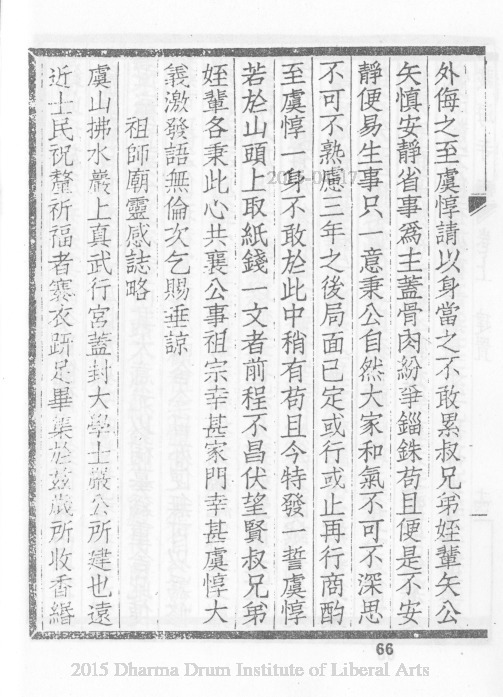 外侮之至虞惇請以身當之不敢累叔兄弟姪輩矢公
矢慎安靜省事爲主蓋骨肉紛爭錙銖苟且便是不安
靜便易生事只一意秉公自然大家和氣不可不深思
不可不熟慮三年之後局面已定或行或止再行商酌
至虞惇一身不敢於此中稍有苟且今特發一誓虞惇
若於山頭上取紙錢一文者前程不昌伏望賢叔兄弟
姪輩各秉此心共襄公事祖宗幸甚家門幸甚虞惇大
義激發語無倫次乞賜垂諒
祖師廟靈感誌略
虞山拂水巖上眞武行宮蓋封大學士嚴公所建也遠
近士民祝釐祈福者褰衣趼足畢集於茲歲所收香緡
66
2015 Dharma Drum Institute of Liberal Arts